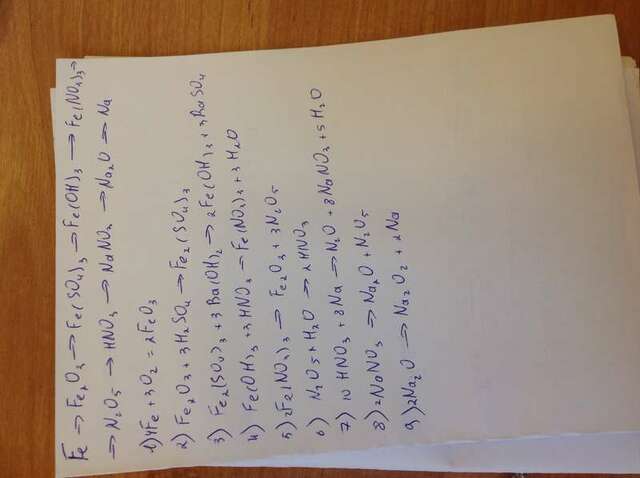 Fe → Fe₂O₃ → Fe(SO₄)₃ → Fe(OH)₃ → Fe(NO₃)₃ →
→ N₂O₅ → HNO₃ → NaNO₃ → Na₂O → Na
1) 4Fe + 3O₂ = 2FeO₃
2) Fe₂O₃ + 3H₂SO₄ → Fe₂(SO₄)₃
3) Fe₂(SO₄)₃ + 3Ba(OH)₂ → 2Fe(OH)₃ + 3BaSO₄
4) Fe(OH)₃ + 3HNO₃ → Fe(NO₃)₃ + 3H₂O
5) 2Fe(NO₃)₃ → Fe₂O₃ + 3N₂O₅
6) N₂O₅ + H₂O → 2HNO₃
7) 10HNO₃ + 8Na → N₂O + 8NaNO₃ + 5H₂O
8) 2NaNO₃ → Na₂O + N₂O₅
9) 2Na₂O → Na₂O₂ + 2Na